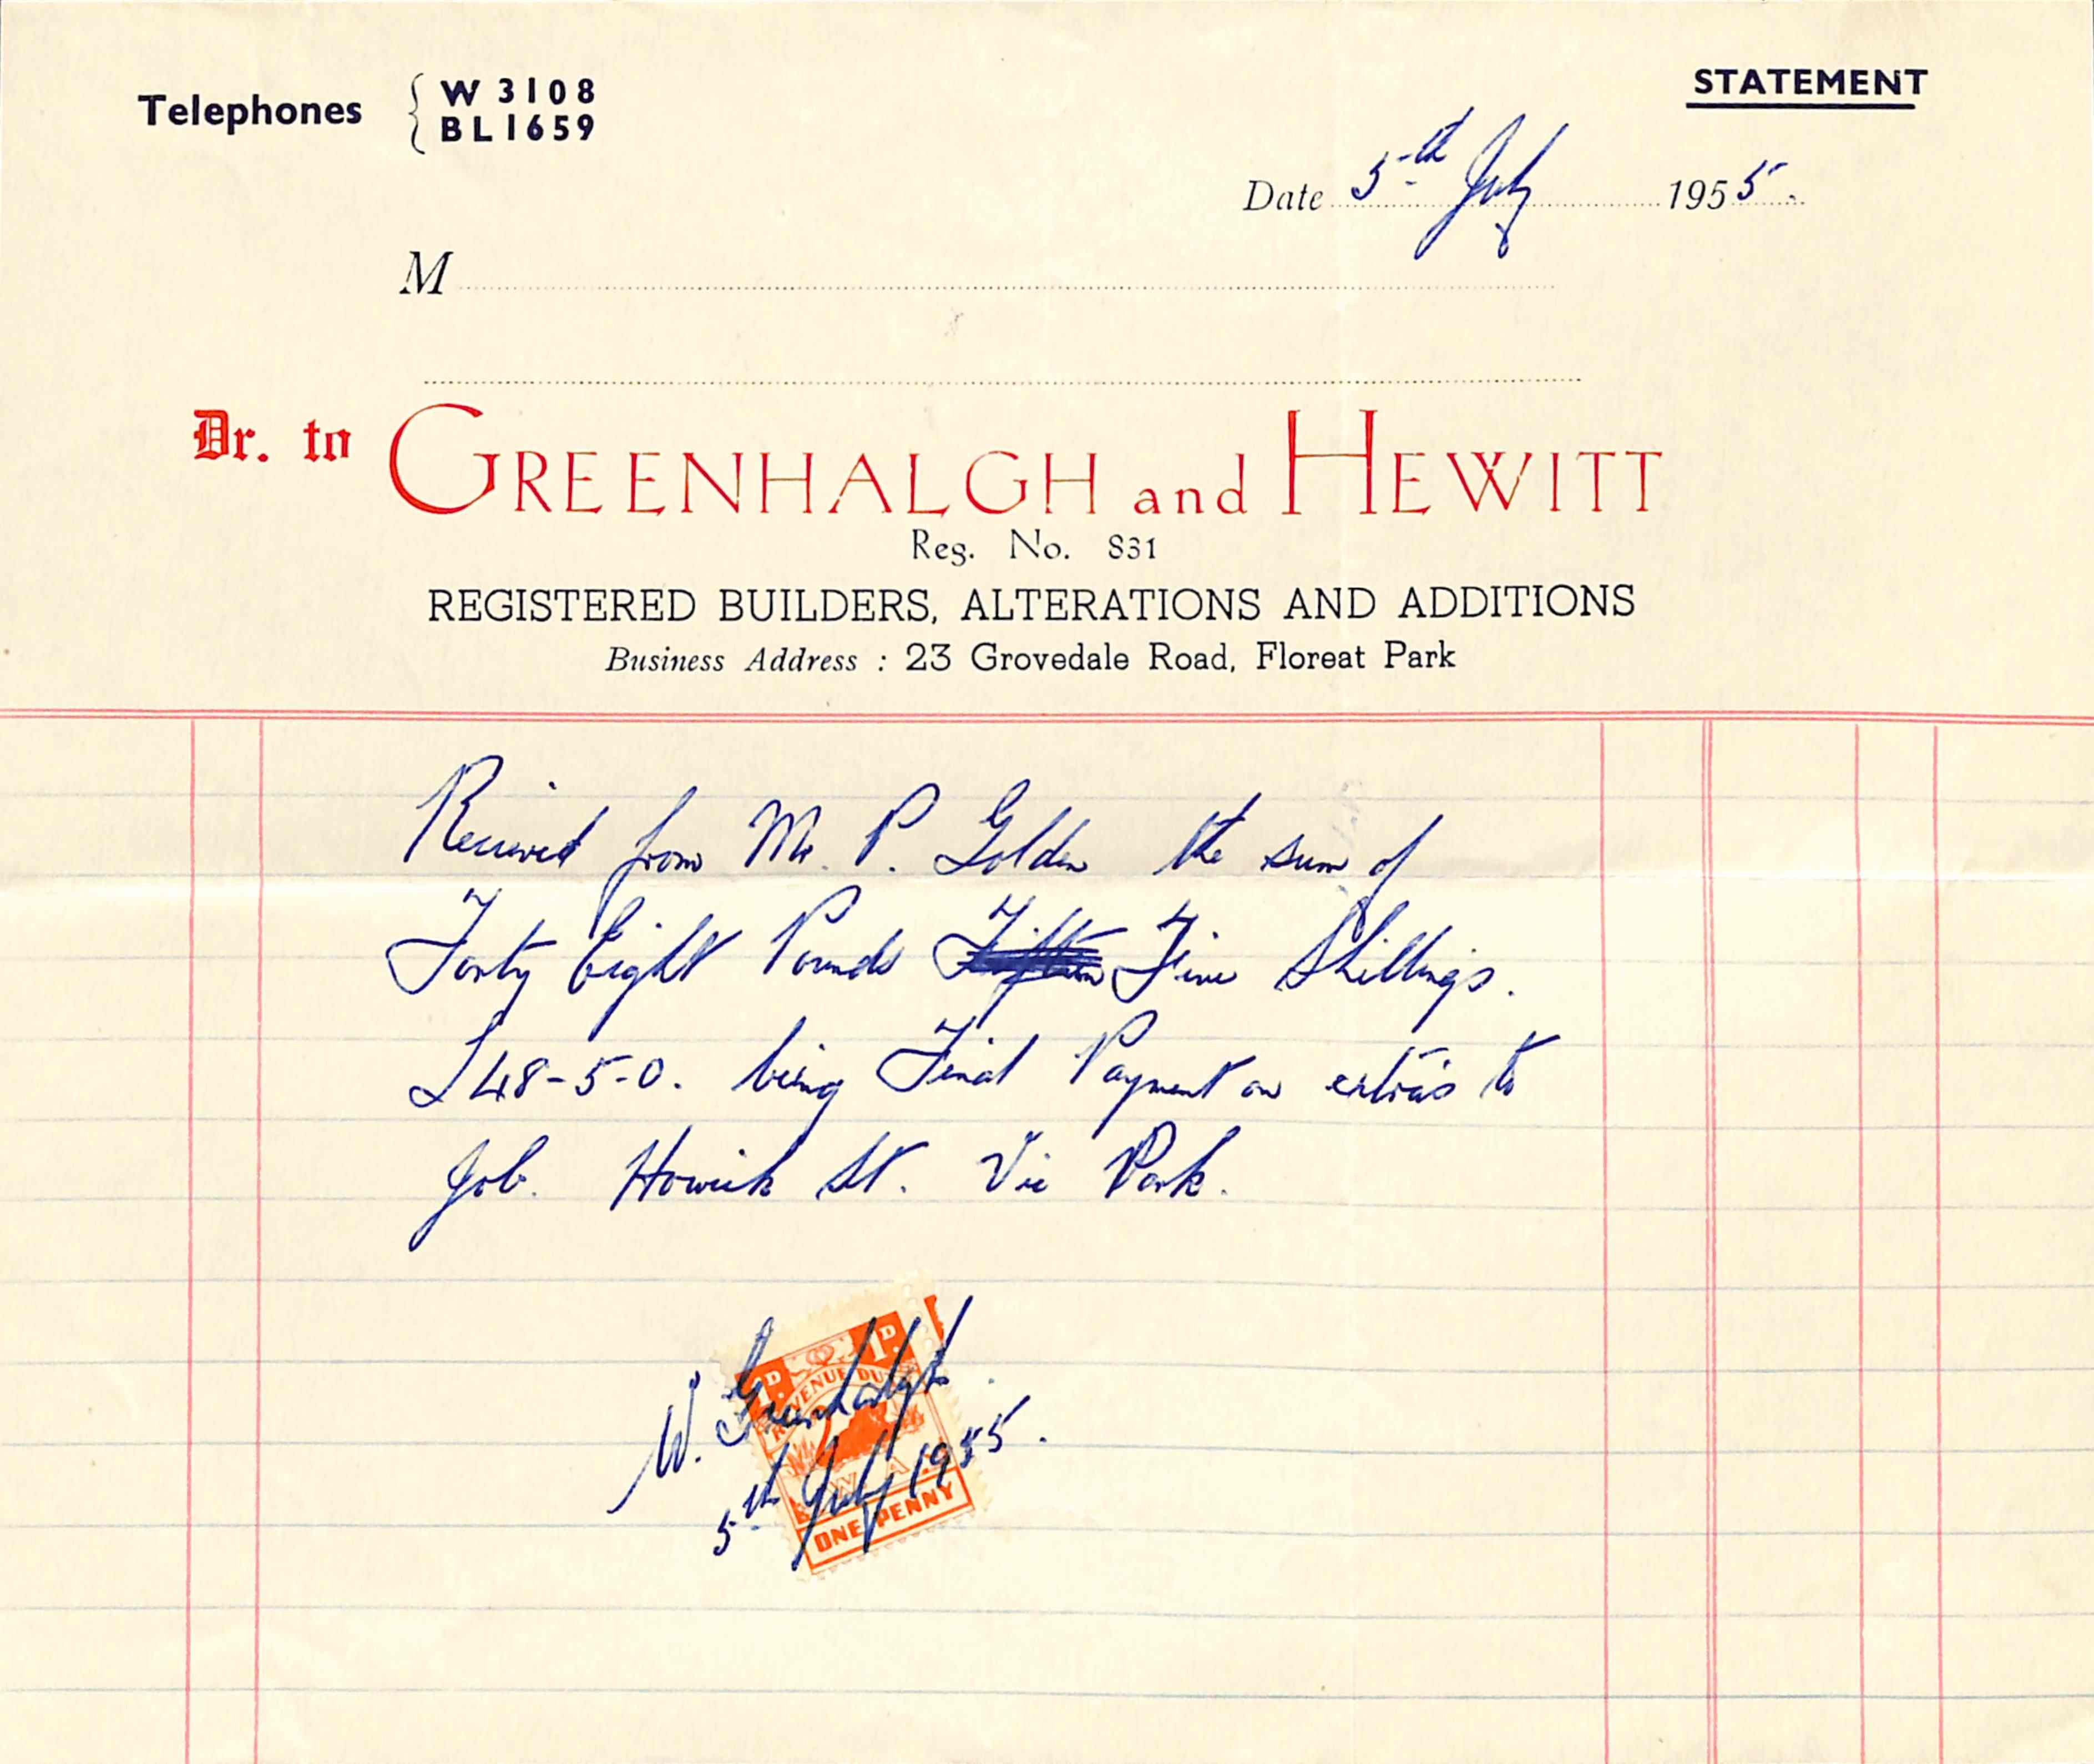 STATEMENT
Telephones { W 3108
BL1659
Date 5th July 1955.
M
Dr. to GREENHALGH and HEWITT
Reg. No. 831
REGISTERED BUILDERS, ALTERATIONS AND ADDITIONS
Business Address : 23 Grovedale Road, Floreat Park
Received from Mr. P. Golden the sum of
Forty Eight Pounds Fifteen Five Shillings.
£48-5-0. being Final Payment on extras to
Job. Howick St. Vic Park.
P. D 1 P. D
REVENUE DUTY
W. Greenhalgh.
5th July 1955.
W A
ONE PENNY